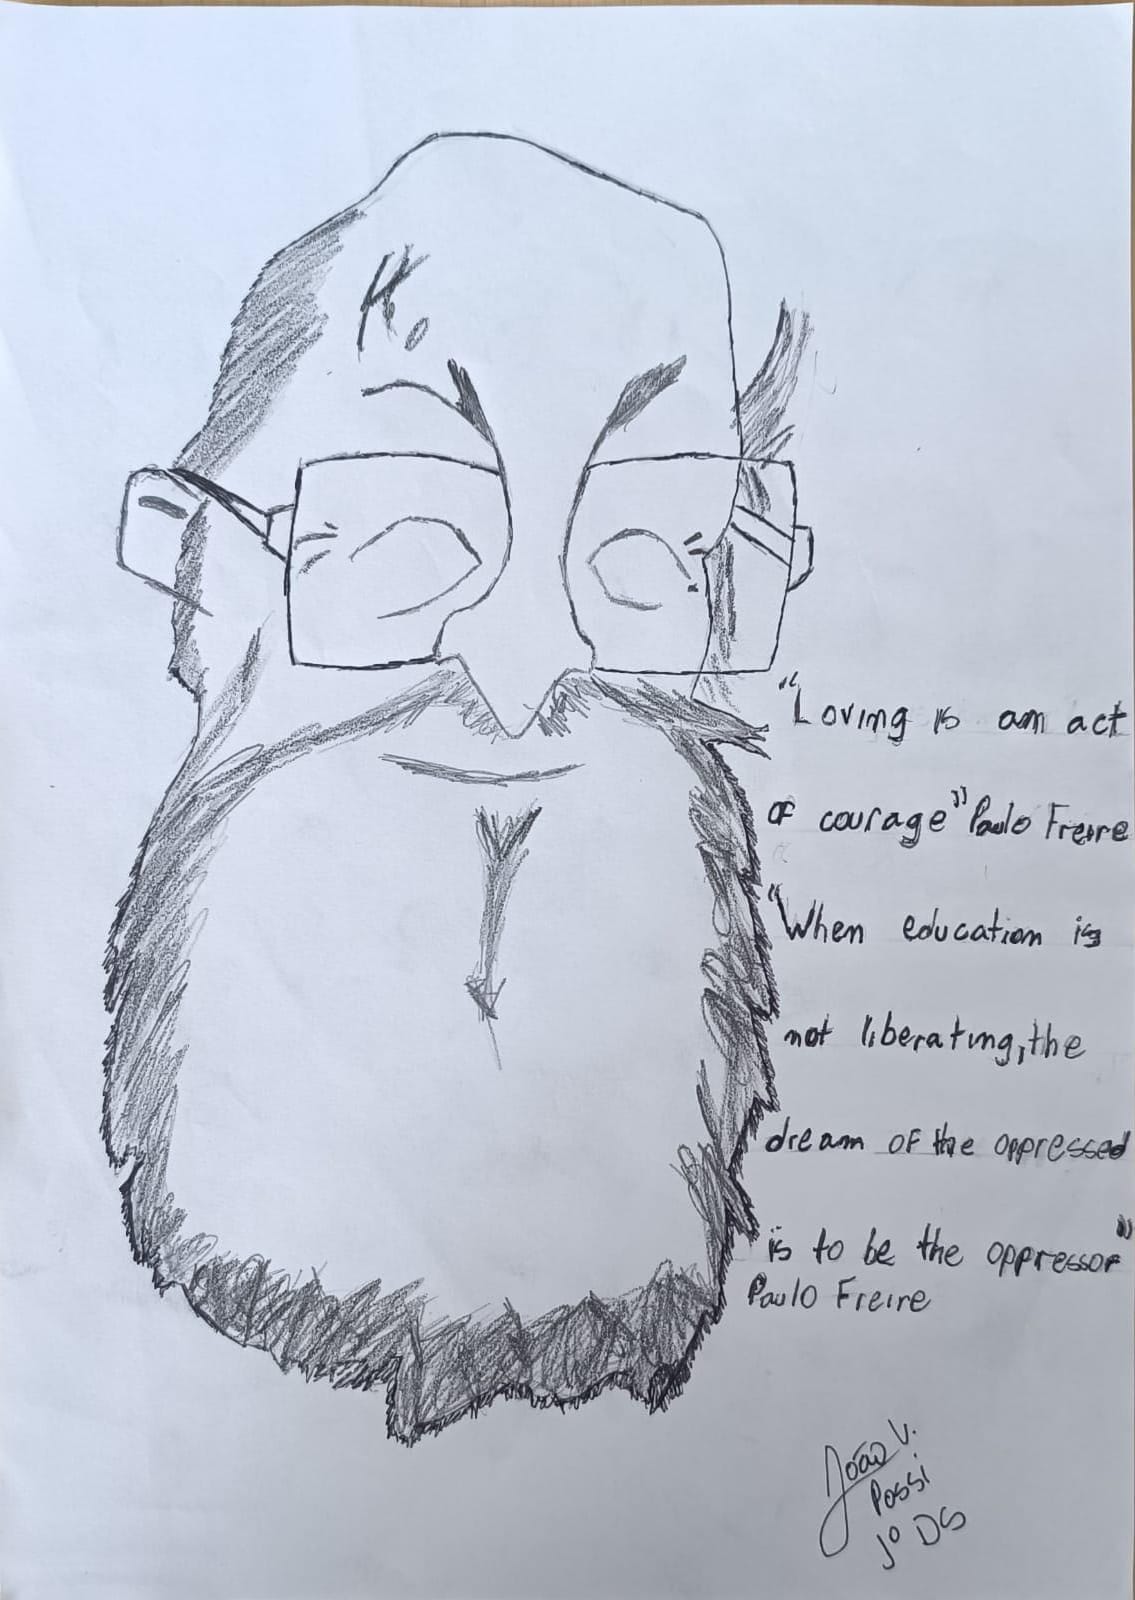 "Loving is am act
of courage" Paulo Freire
"When education is
not liberating, the
dream of the oppressed
is to be the oppressor"
Paulo Freire
João V.
Possi
1º DS